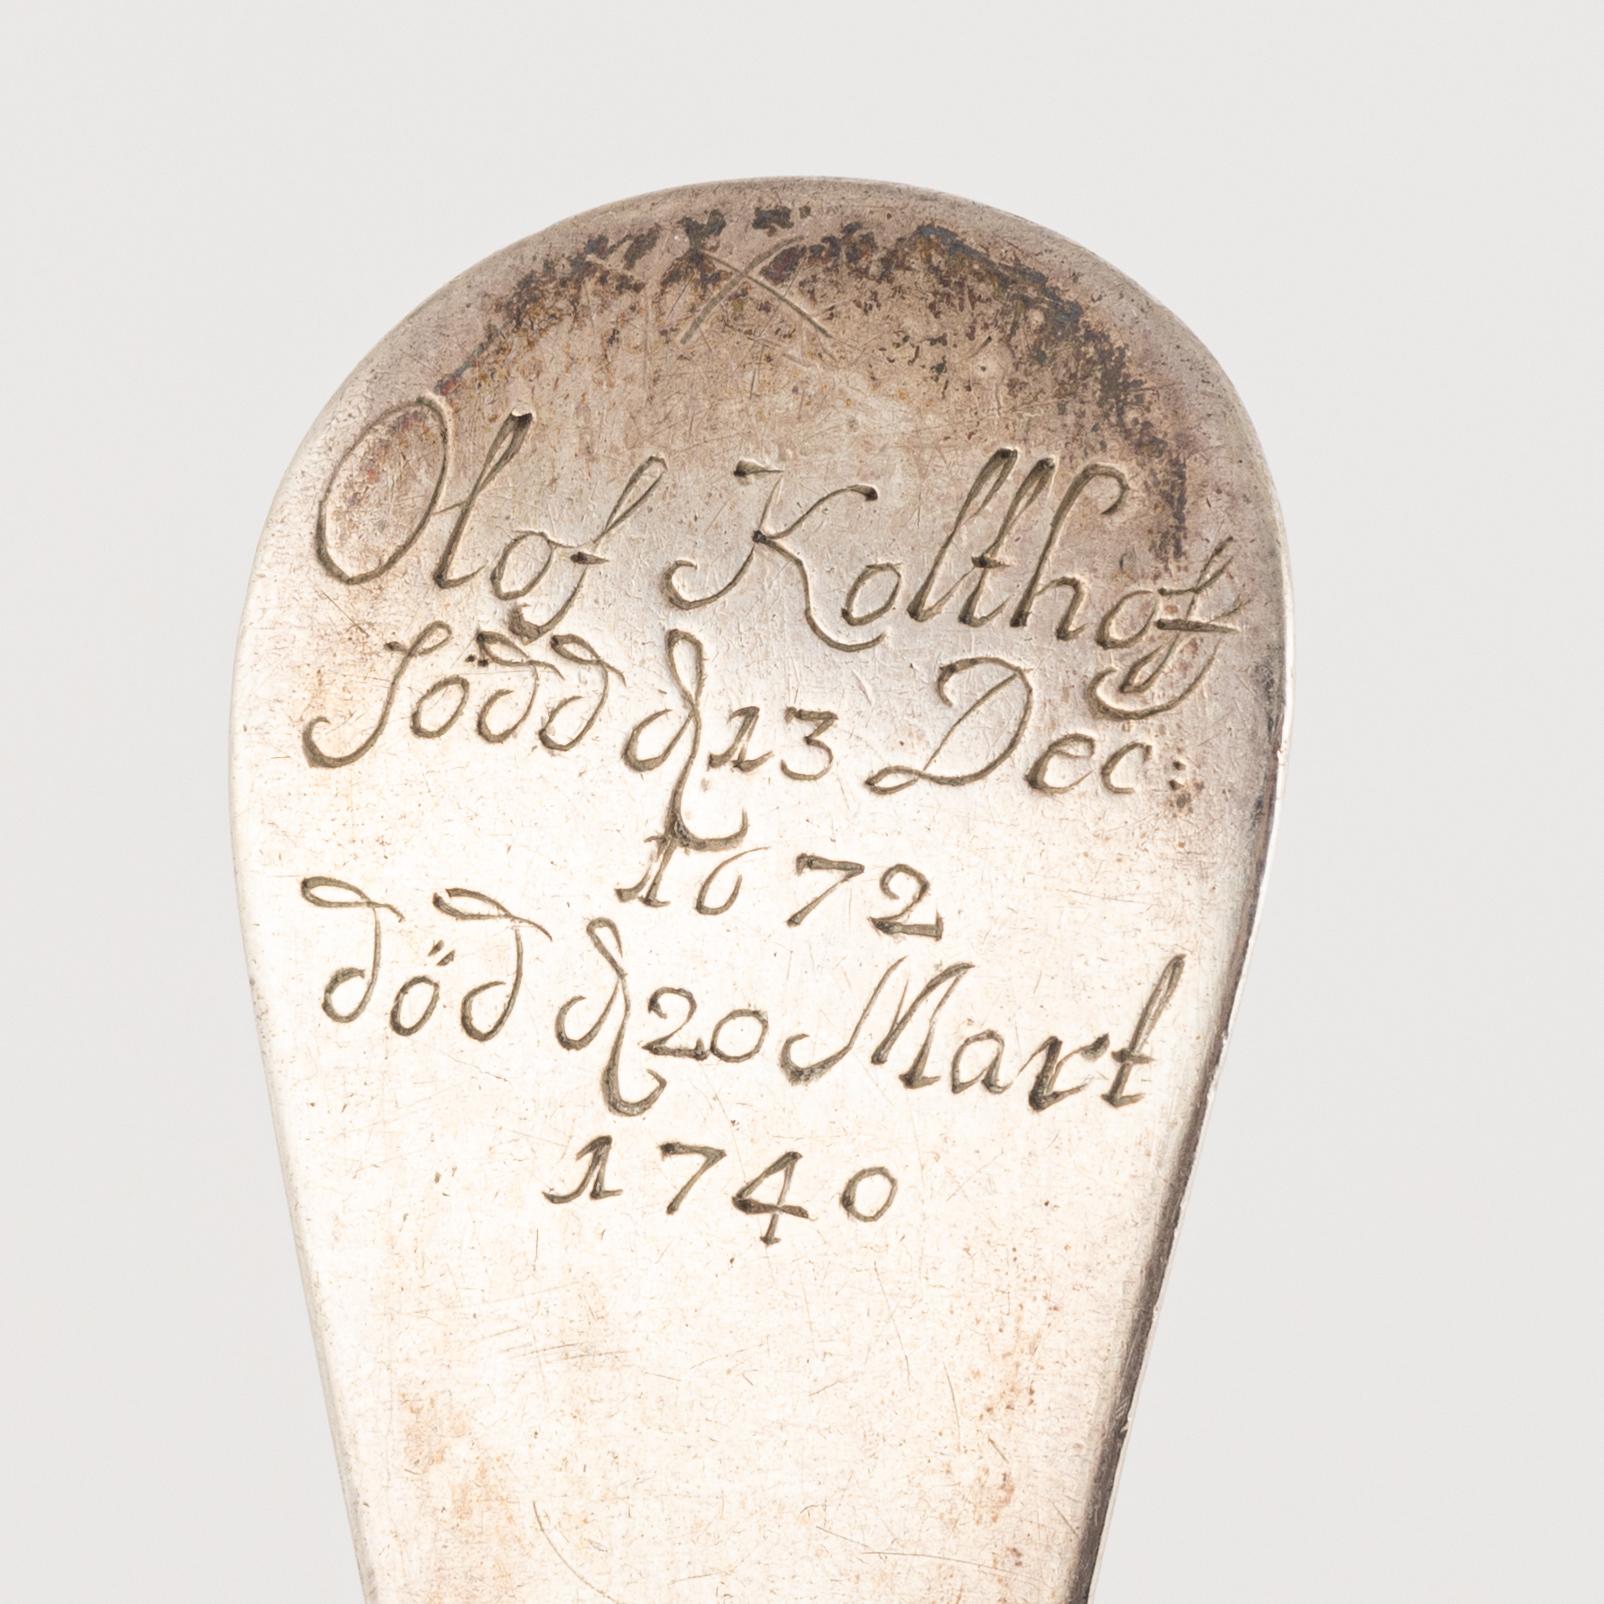 Olof Kolthof
Född d 13 Dec:
1672
död d 20 Mart
1740